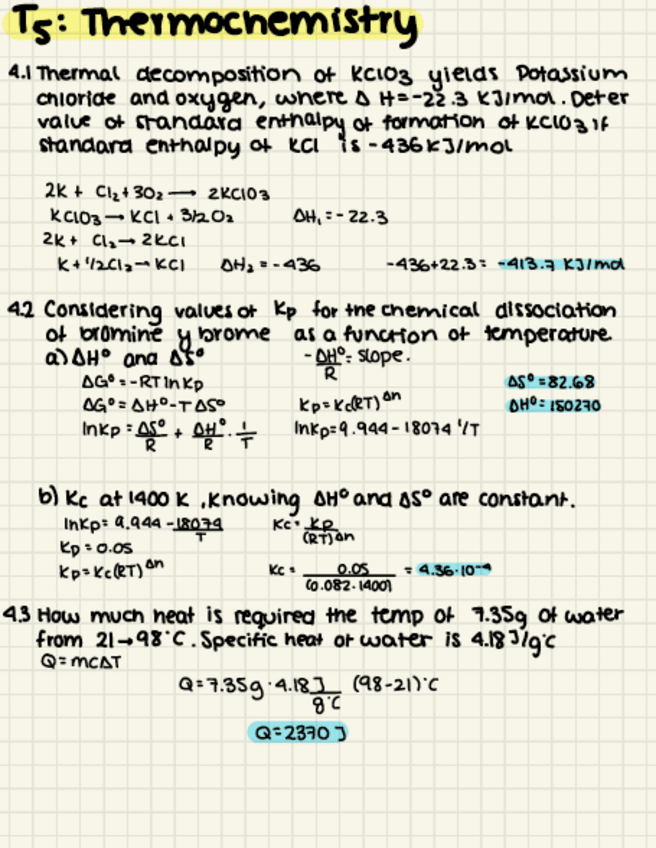 T5: Thermochemistry
4.1 Thermal decomposition of KClO3 yields Potassium
chloride and oxygen, where Δ H=-22.3 KJ/mol. Deter
value of standard enthalpy of formation of KClO3 if
standard enthalpy of KCl is -436KJ/mol
2K + Cl2 + 3O2 → 2KClO3
KClO3 → KCl + 3/2 O2 ΔH1 = -22.3
2K + Cl2 → 2KCl
K + 1/2Cl2 → KCl ΔH2 = -436 -436+22.3 = -413.7 KJ/mol
4.2 Considering values of Kp for the chemical dissociation
of bromine y brome as a function of temperature.
a) ΔH° and ΔS° -ΔH°/R = slope.
ΔG° = -RT ln Kp ΔS° = 82.68
ΔG° = ΔH° - T ΔS° Kp = Kc(RT)^Δn ΔH° = 150270
ln Kp = ΔS°/R + ΔH°/R · 1/T lnKp = 9.944 - 18074 1/T
b) Kc at 1400 K, knowing ΔH° and ΔS° are constant.
lnKp = 9.944 - 18074/T Kc = Kp/(RT)^Δn
Kp = 0.05
Kp = Kc(RT)^Δn Kc = 0.05/(0.082·1400) = 4.36·10^-4
4.3 How much heat is required the temp of 7.35g of water
from 21→98°C. Specific heat of water is 4.18J/g°C
Q = mCΔT
Q = 7.35g · 4.18 J/g°C (98-21)°C
Q = 2370 J